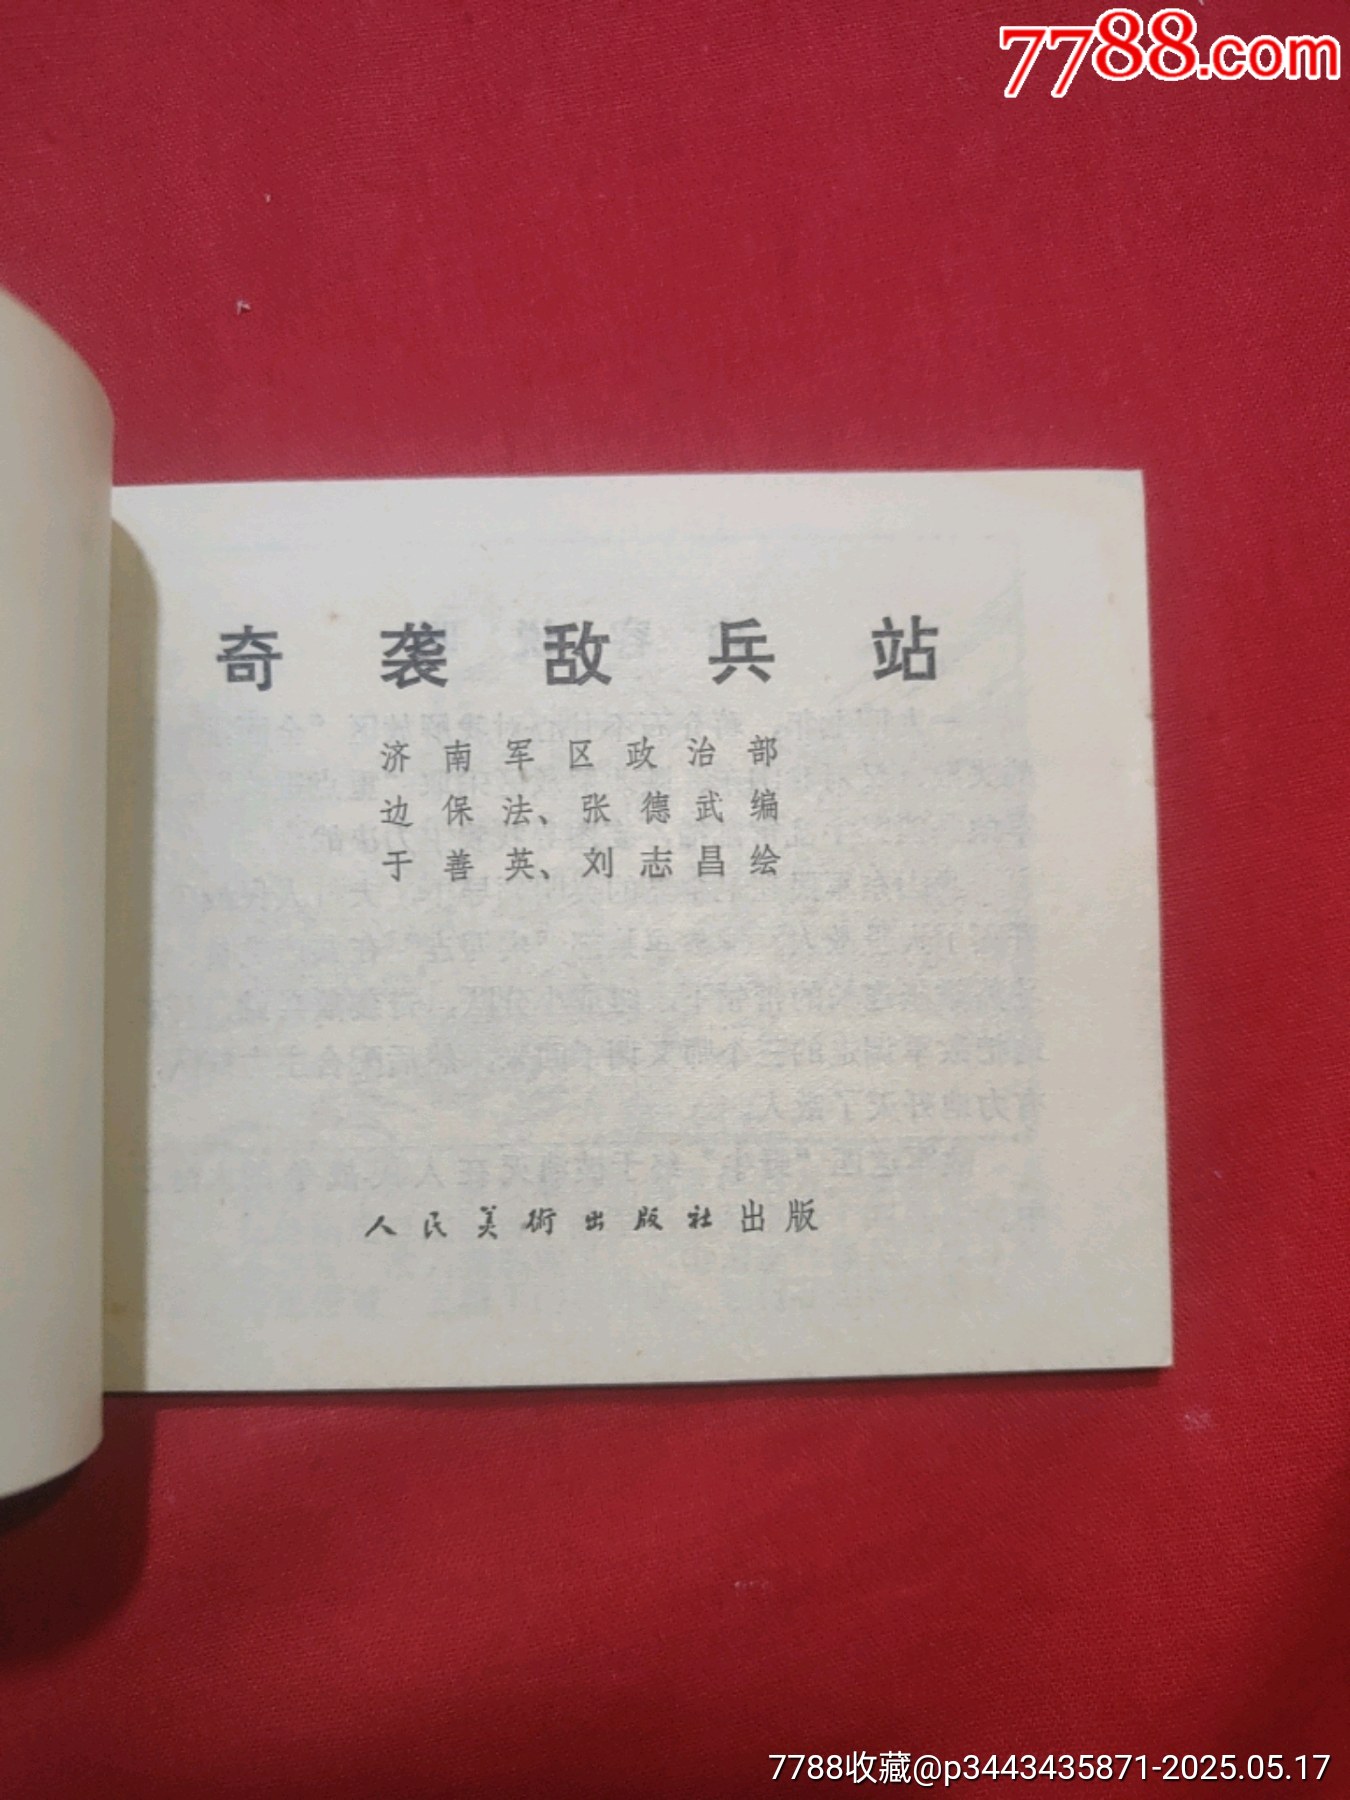 7788.com
奇袭敌兵站
济南军区政治部
边保法、张德武编
于善英、刘志昌绘
人民美術出版社出版
7788收藏@p3443435871-2025.05.17